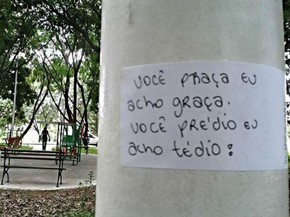 VOCÊ PRAÇA EU
ACHO GRAÇA.
VOCÊ PRÉDIO EU
ACHO TÉDIO!